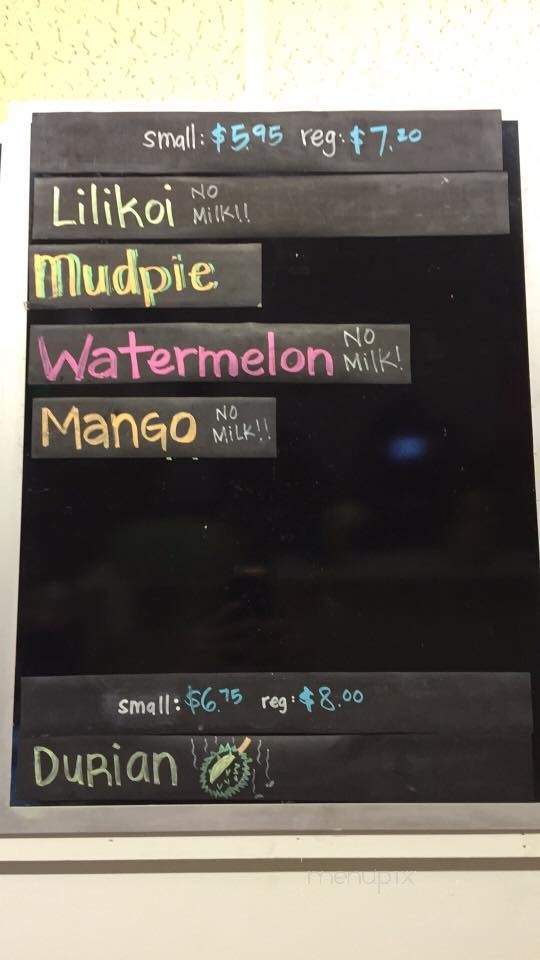 small: $5.95 reg: $7.20
Lilikoi NO MiLK!!
Mudpie
Watermelon NO MiLK!
MANGO NO MiLK!!
small: $6.75 reg: $8.00
DURian
menupix